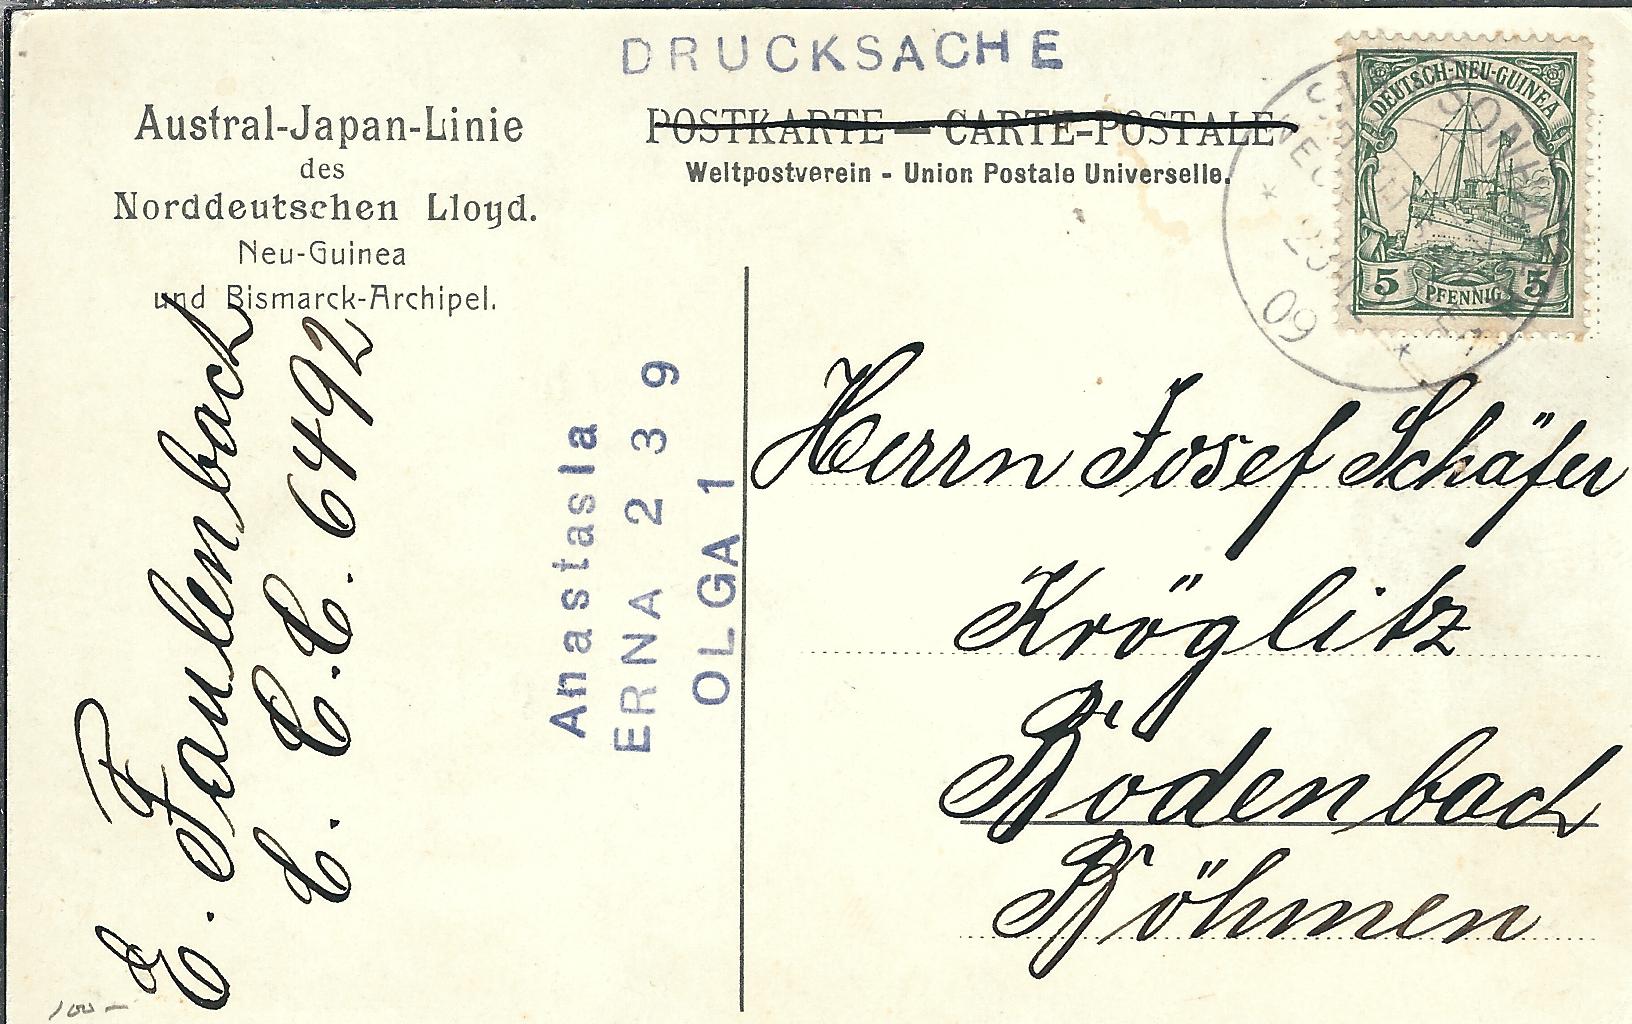 DRUCKSACHE
Austral-Japan-Linie
des
Norddeutschen Lloyd.
Neu-Guinea
und Bismarck-Archipel.
POSTKARTE — CARTE-POSTALE
Weltpostverein - Union Postale Universelle.
DEUTSCH-NEU-GUINEA
5 PFENNIG 5
09
E. Faulenbach
C. C. C. 6492
Anastasia
ERNA 2 3 9
OLGA 1
Herrn Josef Schäfer
Kröglitz
Bodenbach
Böhmen
100-